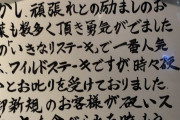 かし、頑張れとの励ましのお
葉も数多く頂き勇気がでまし
「いきなりステーキ」で一番人気
ワイルドステーキですが時々硬
とお叱りを受けておりました
新規のお客様が硬いス